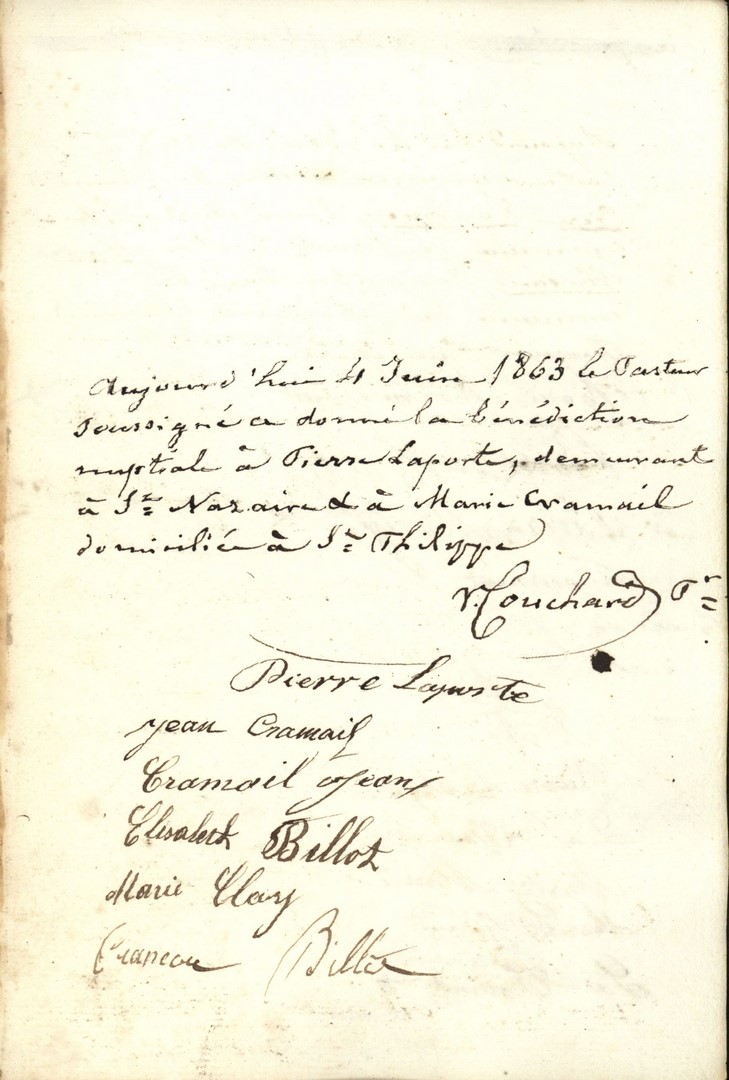 Aujourd'hui 4 Juin 1863 le Pasteur
soussigné a donné la bénédiction
nuptiale à Pierre Laporte, demeurant
à St Nazaire & à Marie Cramail
domiciliée à St Philippe
V. Couchard Pr
Pierre Laporte
jean Cramail
Cramail jean
Elisabeth Billot
Marie Clay
Billot